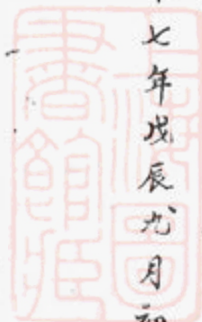 七年戊辰九月初
上海圖
書館藏